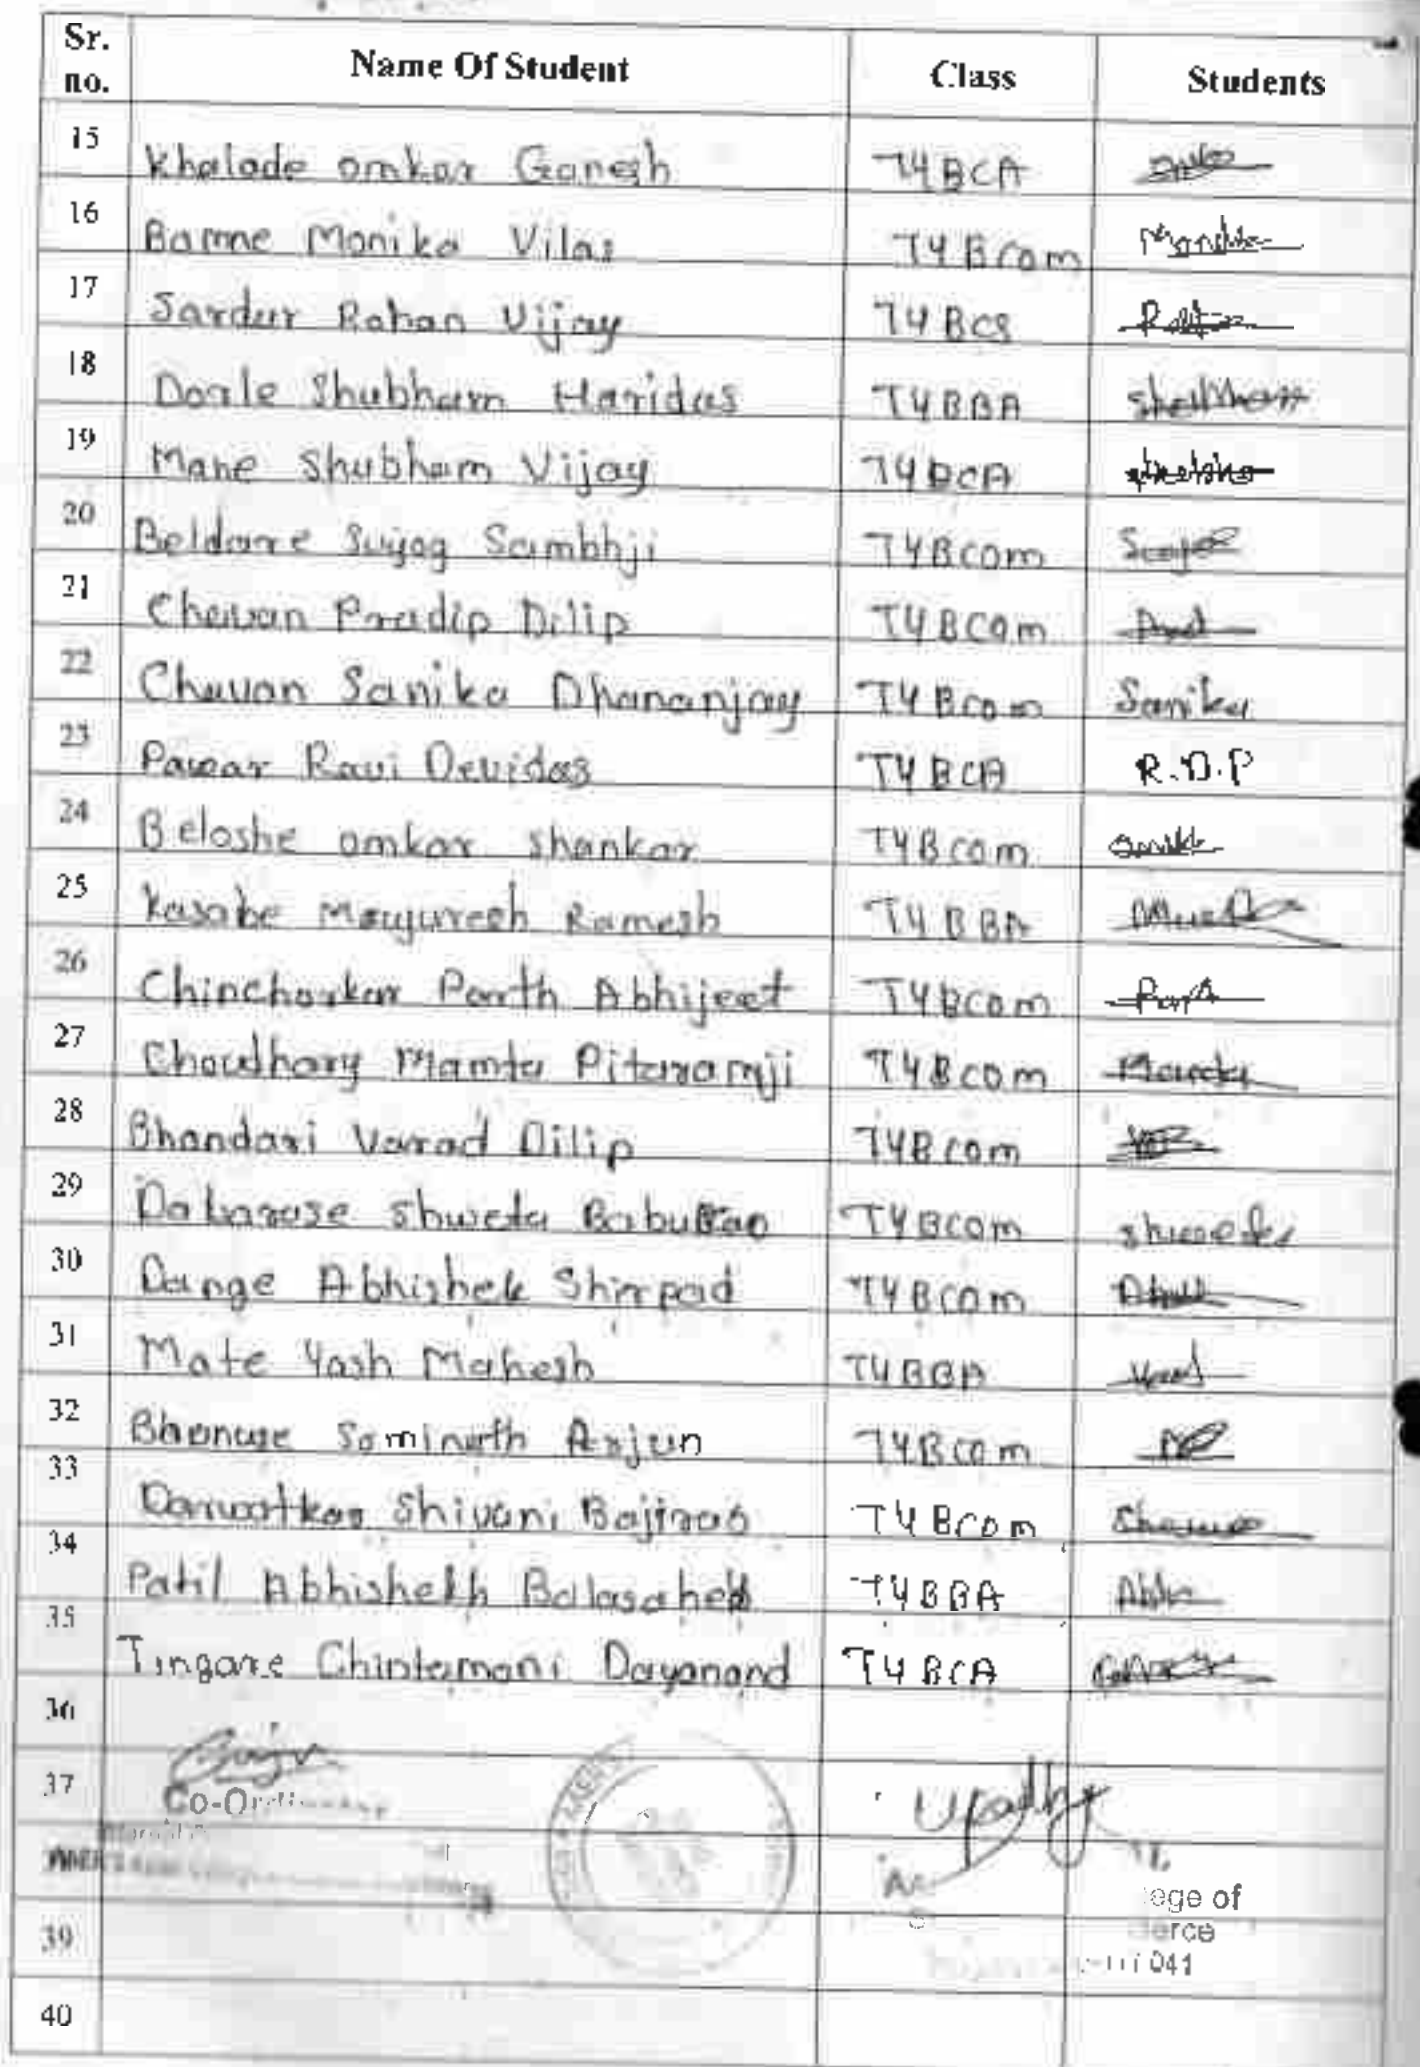 Sr. no. Name Of Student Class Students
15 Khalade omkar Ganesh TYBCA
16 Bamne Monika Vilas TYBcom Monika
17 Sardur Rohan Vijay TYBCS
18 Dorle Shubham Haridas TYBBA
19 Mane Shubham Vijay TYBCA
20 Beldare Suyog Sambhji TYBCOM
21 Chavan Pradip Dilip TYBCOM
22 Chavan Sanika Dhananjay TYBcom Sanika
23 Pawar Ravi Devidas TYBCA R.D.P
24 Beloshe omkar shankar TYBcom
25 Kasabe Mayuresh Ramesh TYBBA
26 Chinchorkar Parth Abhijeet TYBcom
27 Choudhary Mamta Pitaramji TYBcom
28 Bhandari Varad Dilip TYBcom
29 Shweta TYBCOM shweta
30 Dange Abhishek Shirpad TYBCOM
31 Mate Yash Mahesh TYBBA
32 Sominath Arjun TYBcom
33 Shivani Bajirao TYBcom
34 Patil Abhishekh Balasaheb TYBBA
35 Tingare Chintamani Dayanand TYBCA
36
37
Upadhy
ege of
39 erce
041
40